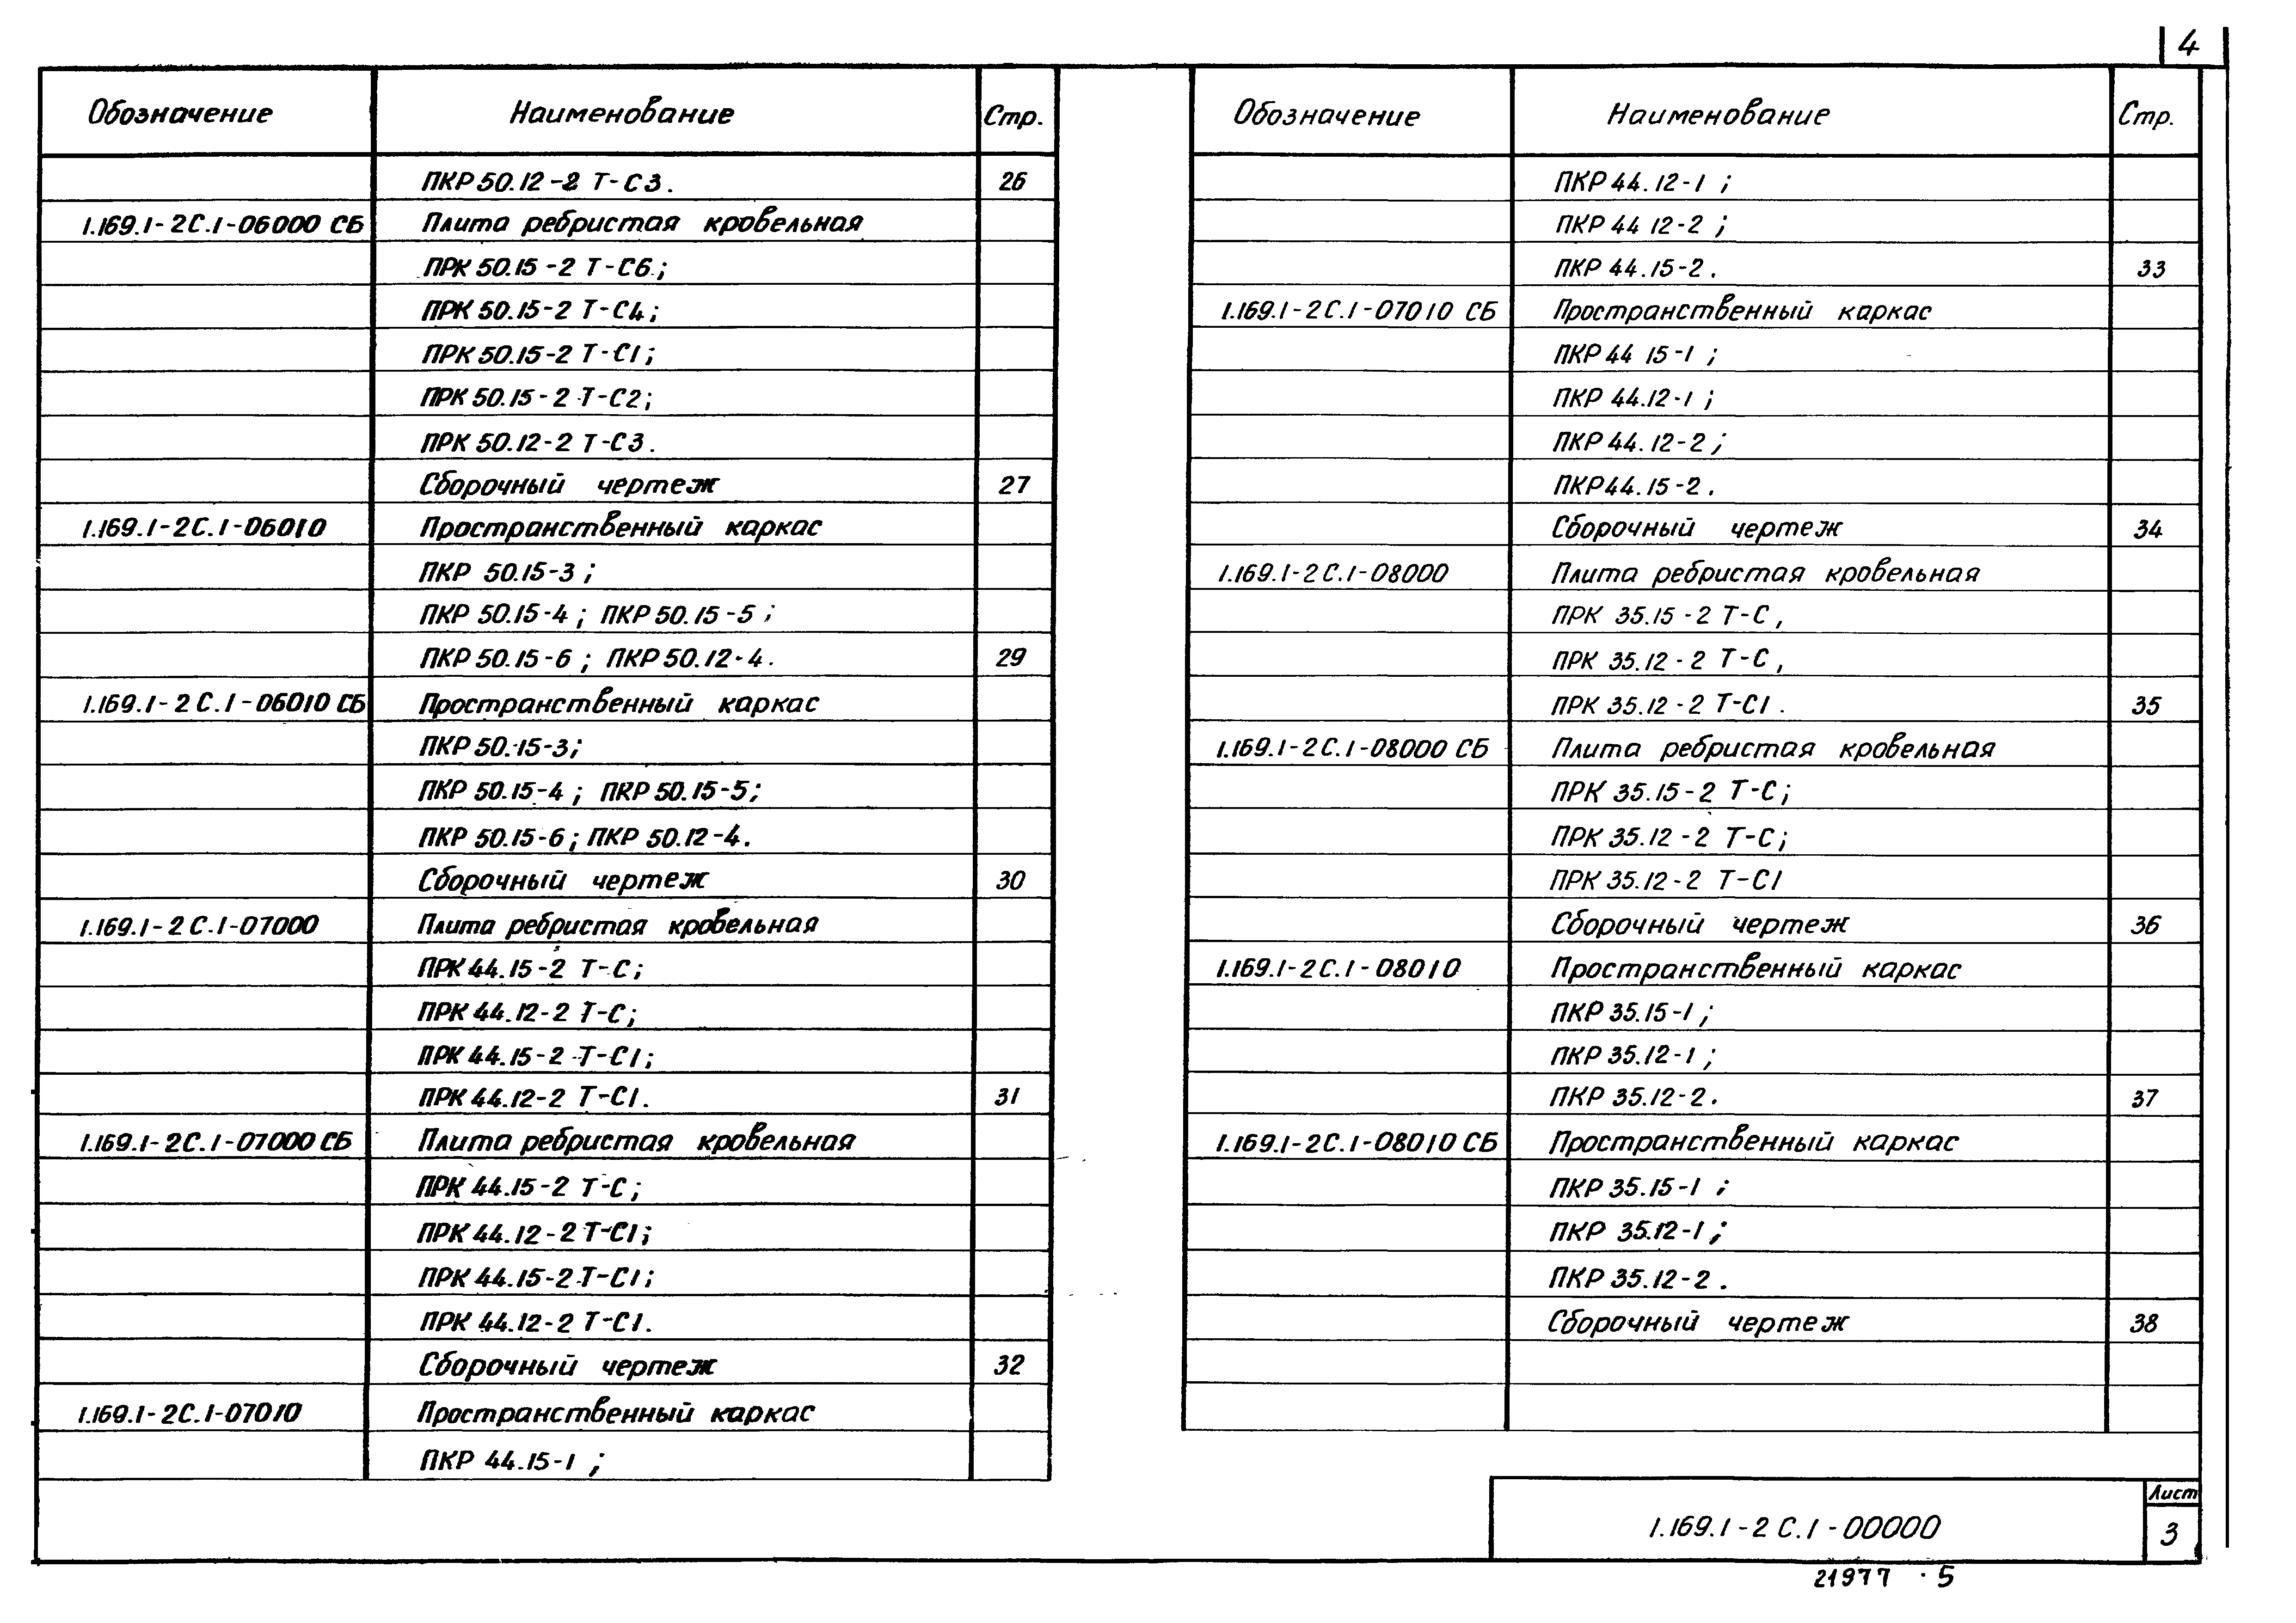 4
Обозначение Наименование Стр.
ПКР 50.12-2 Т-С3. 26
1.169.1-2С.1-06000 СБ Плита ребристая кровельная
ПРК 50.15-2 Т-С6;
ПРК 50.15-2 Т-С4;
ПРК 50.15-2 Т-С1;
ПРК 50.15-2 Т-С2;
ПРК 50.12-2 Т-С3.
Сборочный чертеж 27
1.169.1-2С.1-06010 Пространственный каркас
ПКР 50.15-3;
ПКР 50.15-4; ПКР 50.15-5;
ПКР 50.15-6; ПКР 50.12-4. 29
1.169.1-2С.1-06010 СБ Пространственный каркас
ПКР 50.15-3;
ПКР 50.15-4; ПКР 50.15-5;
ПКР 50.15-6; ПКР 50.12-4.
Сборочный чертеж 30
1.169.1-2С.1-07000 Плита ребристая кровельная
ПРК 44.15-2 Т-С;
ПРК 44.12-2 Т-С;
ПРК 44.15-2 Т-С1;
ПРК 44.12-2 Т-С1. 31
1.169.1-2С.1-07000 СБ Плита ребристая кровельная
ПРК 44.15-2 Т-С;
ПРК 44.12-2 Т-С1;
ПРК 44.15-2 Т-С1;
ПРК 44.12-2 Т-С1.
Сборочный чертеж 32
1.169.1-2С.1-07010 Пространственный каркас
ПКР 44.15-1;
Обозначение Наименование Стр.
ПКР 44.12-1;
ПКР 44 12-2;
ПКР 44.15-2. 33
1.169.1-2С.1-07010 СБ Пространственный каркас
ПКР 44 15-1;
ПКР 44.12-1;
ПКР 44.12-2;
ПКР 44.15-2.
Сборочный чертеж 34
1.169.1-2С.1-08000 Плита ребристая кровельная
ПРК 35.15-2 Т-С,
ПРК 35.12-2 Т-С,
ПРК 35.12-2 Т-С1. 35
1.169.1-2С.1-08000 СБ Плита ребристая кровельная
ПРК 35.15-2 Т-С;
ПРК 35.12-2 Т-С;
ПРК 35.12-2 Т-С1
Сборочный чертеж 36
1.169.1-2С.1-08010 Пространственный каркас
ПКР 35.15-1;
ПКР 35.12-1;
ПКР 35.12-2. 37
1.169.1-2С.1-08010 СБ Пространственный каркас
ПКР 35.15-1;
ПКР 35.12-1;
ПКР 35.12-2.
Сборочный чертеж 38
1.169.1-2С.1-00000
Лист
3
21977 · 5